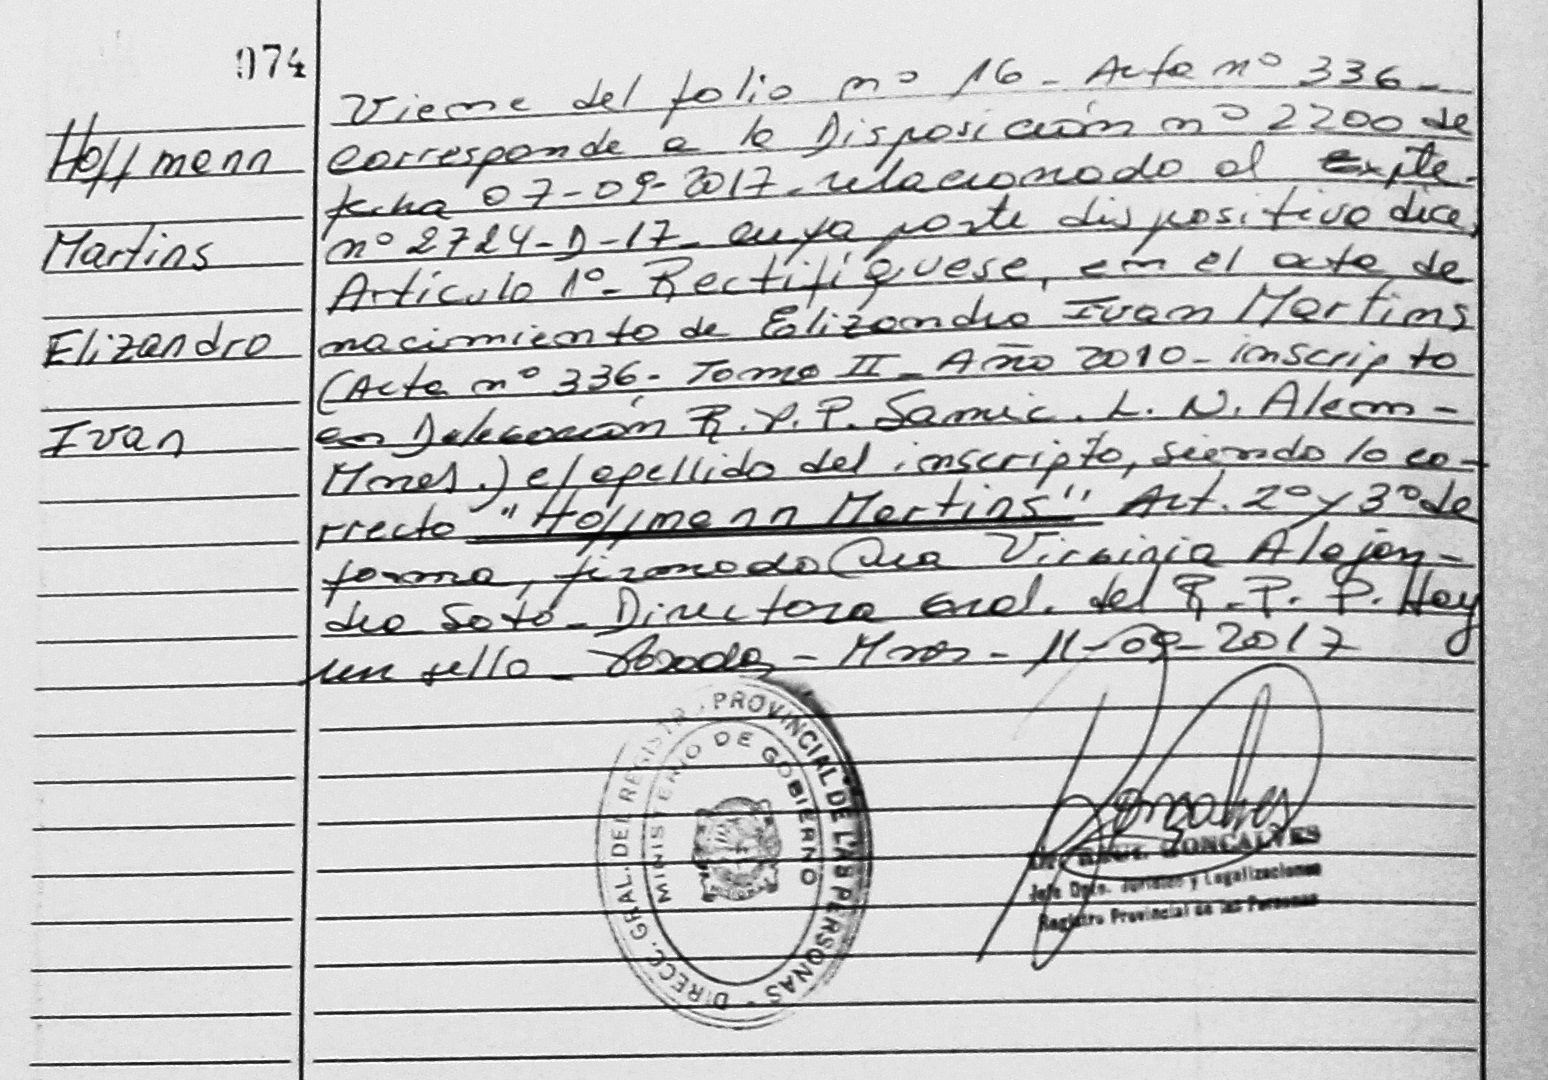 074
Hoffmann
Martins
Elizandro
Ivan
Viene del folio nº 16 - Acta nº 336 -
corresponde a la Disposición nº 2200 de
fecha 07-09-2017 - relacionado al Expte.
nº 2724-D-17 - cuya parte dispositiva dice,
Artículo 1º - Rectifíquese, en el acta de
nacimiento de Elizandro Ivan Martins
(Acta nº 336 - Tomo II - Año 2010 - inscripto
en Delegación R.P.P. Samic. L. N. Alem -
Mnes.) el apellido del inscripto, siendo lo co-
rrecto "Hoffmann Martins" Art. 2º y 3º de
forma, firmado Dra Virginia Alejan-
dra Soto - Directora Gral. del R.P.P. Hay
un sello - Posadas - Mnes - 11-09-2017
DIRECC. GRAL. DEL REGISTRO PROVINCIAL DE LAS PERSONAS -
MINISTERIO DE GOBIERNO
GONCALVES
Jefe Dpto. Jurídico y Legalizaciones
Registro Provincial de las Personas